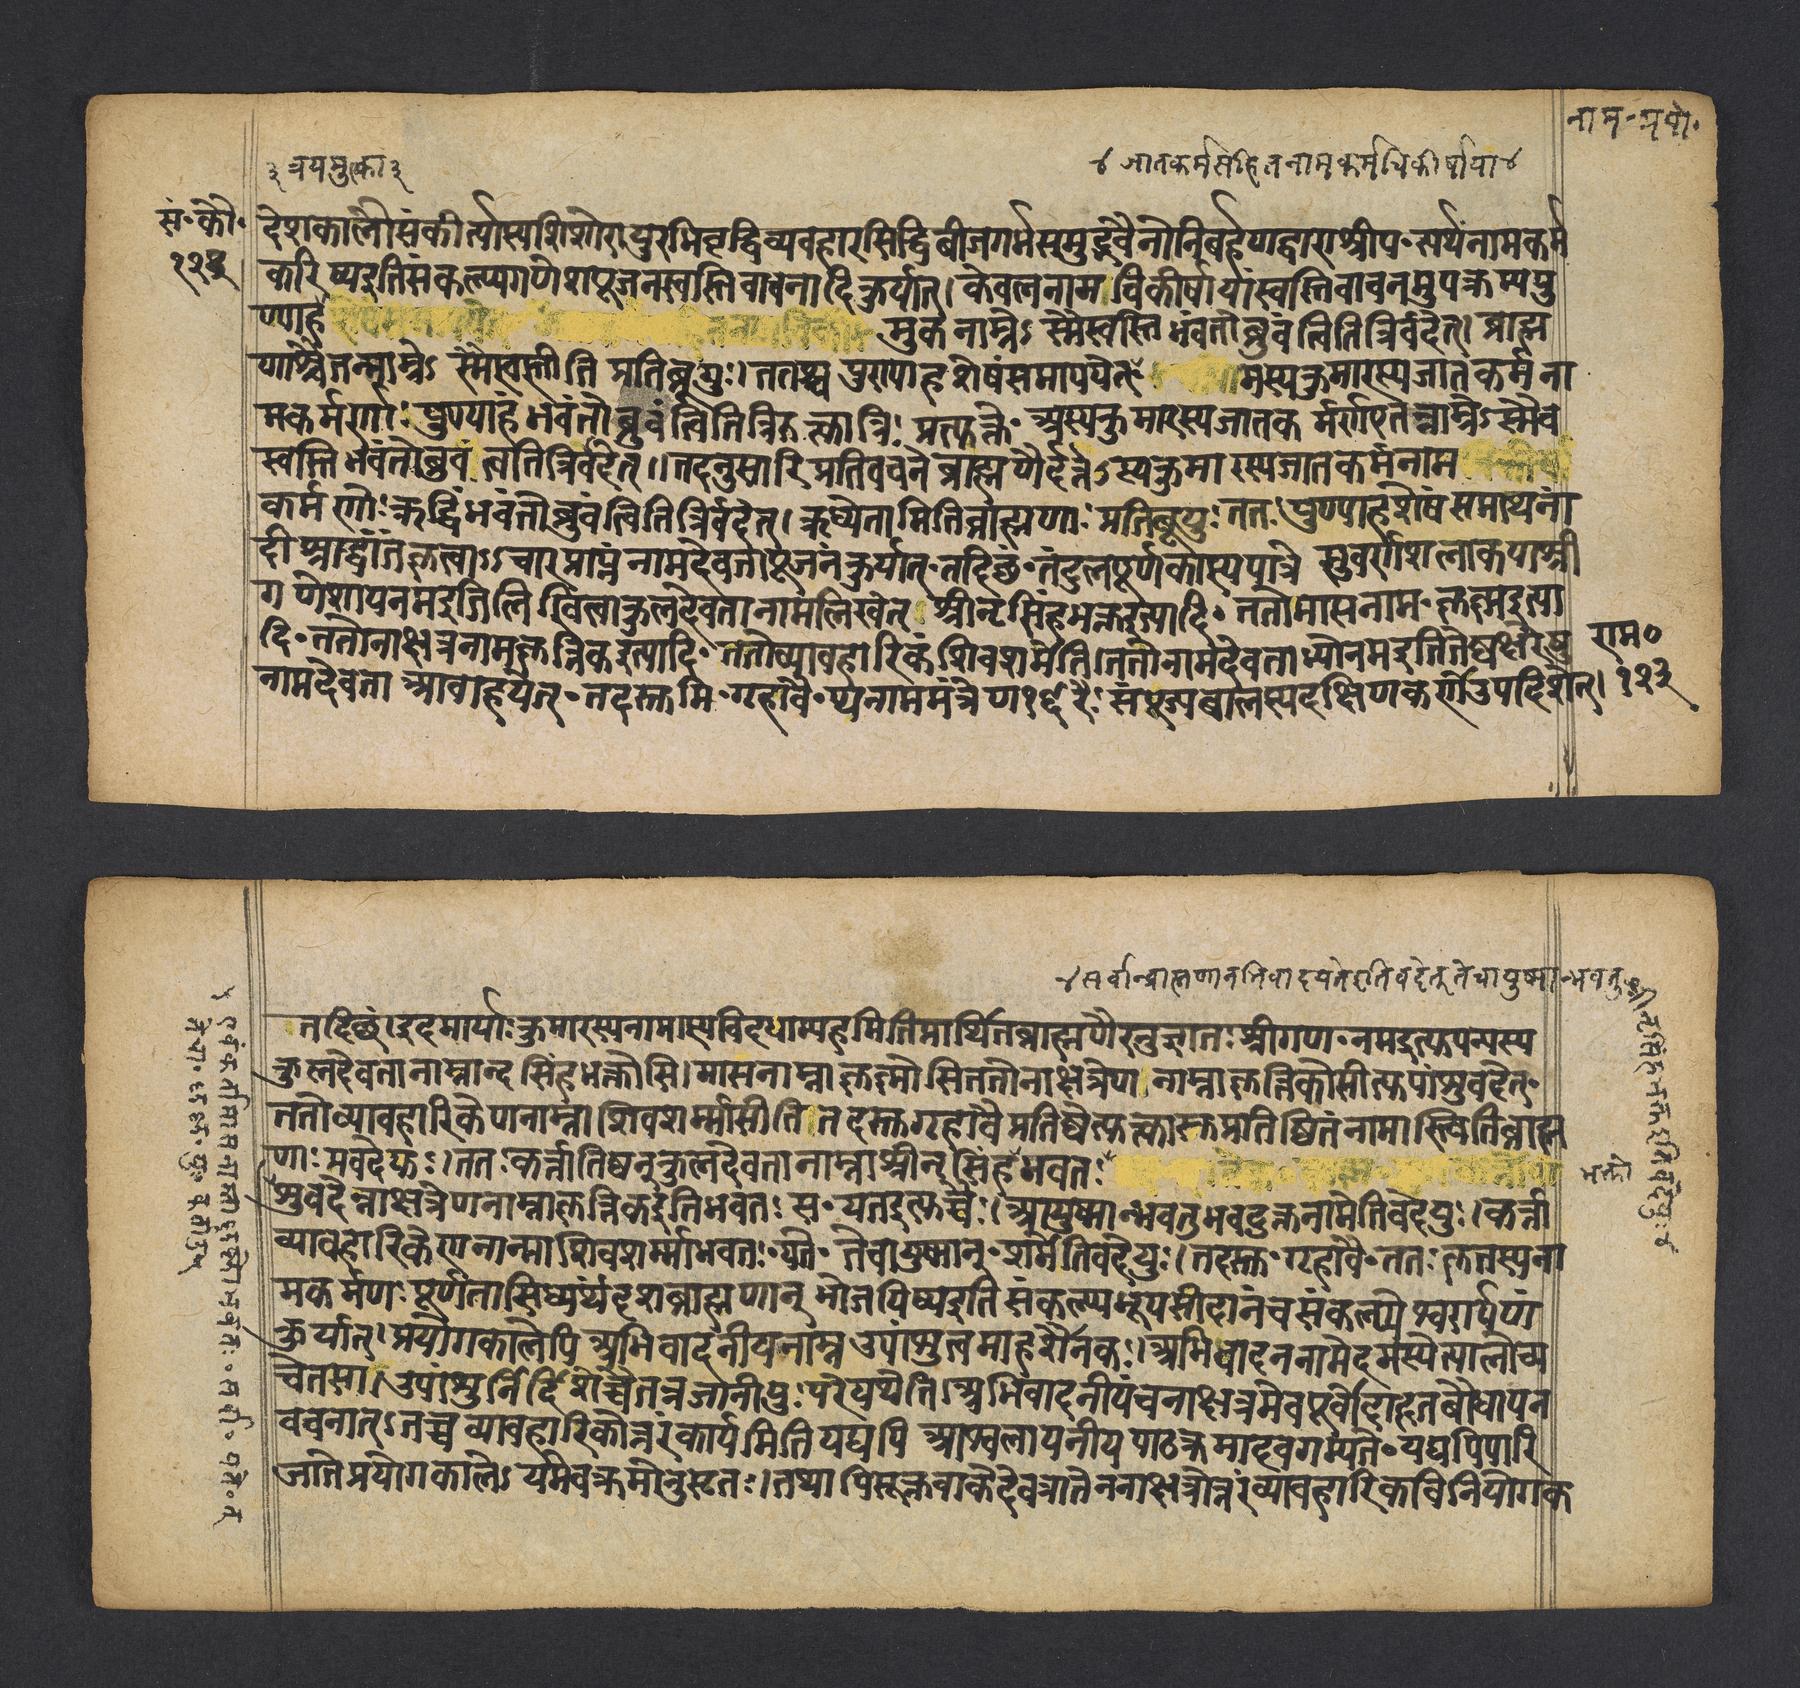 नाम-प्रयो॰
३ त्रयमुक्त्वा ३
४ जातकर्मसहितनामकर्मचिकीर्षायां ४
सं॰ कौ॰
१२३
देशकालौसंकीर्त्यास्यशिशोरायुरभिवृद्धिव्यवहारसिद्धिबीजगर्भसमुद्भवैनोनिबर्हणद्वाराश्रीप॰ त्यर्थंनामकर्म
करिष्यइतिसंकल्प्यगणेशपूजनस्वस्तिवाचनादिकुर्यात्। केवलनामचिकीर्षायांस्वस्तिवाचनमुपक्रम्यपु
ण्याहे मुकनाम्नेऽस्मैस्वस्तिभवंतोब्रुवंत्वितित्रिर्वदेत्। ब्राह्म
णाश्चैतन्नाम्नेऽस्मैस्वस्तीतिप्रतिब्रूयुः। ततश्च पुण्याहशेषंसमापयेत् मस्यकुमारस्यजातकर्मना
मकर्मणोः पुण्याहंभवंतोब्रुवंत्वितित्रिरुक्त्वात्रिः प्रत्युक्ते॰ अस्यकुमारस्यजातकर्मणएतन्नाम्नेऽस्मैच
स्वस्तिभवंतोब्रुवंत्वतित्रिर्वदेत्॥ तदनुसारिप्रतिवचनेब्राह्मणैर्दत्तेऽस्यकुमारस्यजातकर्मनाम
कर्मणोःऋद्धिंभवंतोब्रुवंत्वितित्रिर्वदेत्। ऋध्येतामितिब्राह्मणाः प्रतिब्रूयुः ततः पुण्याहशेषंसमाप्यनां
दीश्राद्धांतंकृत्वाऽऽचारप्राप्तंनामदेवतापूजनंकुर्यात्॰ तदित्थं॰ तंदुलपूर्णकांस्यपात्रे सुवर्णशलाकयाश्री
गणेशायनमइतिलिखित्वाकुलदेवतानामलिखेत् श्रीनृसिंहभक्तइत्यादि॰ ततोमासनाम॰ कृष्णइत्या
दि॰ ततोनाक्षत्रनामकृत्तिकइत्यादि॰ ततोव्यावहारिकंशिवशर्मेति। ततोनामदेवताभ्योनमइतितेष्वक्षरेषु
राम॰
नामदेवता आवाहयेत्॰ तदस्तुमि॰ गृहावै॰ प्यनाममंत्रेण१६ रैः संपूज्यबालस्यदक्षिणकर्णेउपदिशेत्।
१२३
४ सर्वान्ब्राह्मणानभिवादयेतइतिवदेत् तेचायुष्मान्भवतु
तदित्थं। इदमार्याः कुमारस्यनामास्यविदधाम्यहमितिप्रार्थितब्राह्मणैरनुज्ञातः श्रीगण॰ नमइत्युपन्यस्य
कुलदेवतानाम्नानृसिंहभक्तोसि। मासनाम्नाकृष्णोसिततोनाक्षत्रेण नाम्नाकृत्तिकोसीत्युपांशुवदेत्॰
ततोव्यावहारिकेणनाम्ना। शिवशर्म्मासीति तदस्तुगृहावै प्रतिष्ठेत्युक्त्वास्तुप्रतिष्ठितंनामास्त्वितिब्राह्म
णाः प्रवदेयुः। ततः कर्त्तातिष्ठन्कुलदेवतानाम्नाश्रीनृसिंहभवतः
भक्तो
शुवदेन्नाक्षत्रेणनाम्नाकृत्तिकइतिभवतः स॰ यतइत्युच्चैः। आयुष्मान्भवतुभवदुक्तनामेतिवदेयुः। कर्त्ता
व्यावहारिकेणनान्माशिवशर्म्माभवतः॰ यते॰ तेचायुष्मान्॰ शर्मेतिवदेयुः। तदस्तु॰ गृहावै॰ ततः कृतस्यना
मकर्मणः पूर्णतासिध्यर्थंदशब्राह्मणान् भोजयिष्यइतिसंकल्प्यभूयसीदानंचसंकल्प्येश्वरार्पणं
कुर्यात्। प्रयोगकालेपि अभिवादनीयनाम्न उपांशुत्वमाहशौनकः। अभिवादननामेदमस्येत्यालोच्य
चेतसा। उपांशुनिर्दिशेच्चैतन्नजानीयुः परेयथेति। अभिवादनीयंचनाक्षत्रमेवपूर्वोदाहृतबौधायन
वचनात्ऽ तच्च व्यावहारिकोत्तरंकार्यमितियद्यपि आश्वलायनीयपाठक्रमादवगम्यते॰ यद्यपिपारि
जातेप्रयोगकालेऽप्ययमेवक्रमोनुसृतः। तथापिसूक्तवाकेदेवत्रातेननाक्षत्रोत्तरंव्यावहारिकविनियोगक